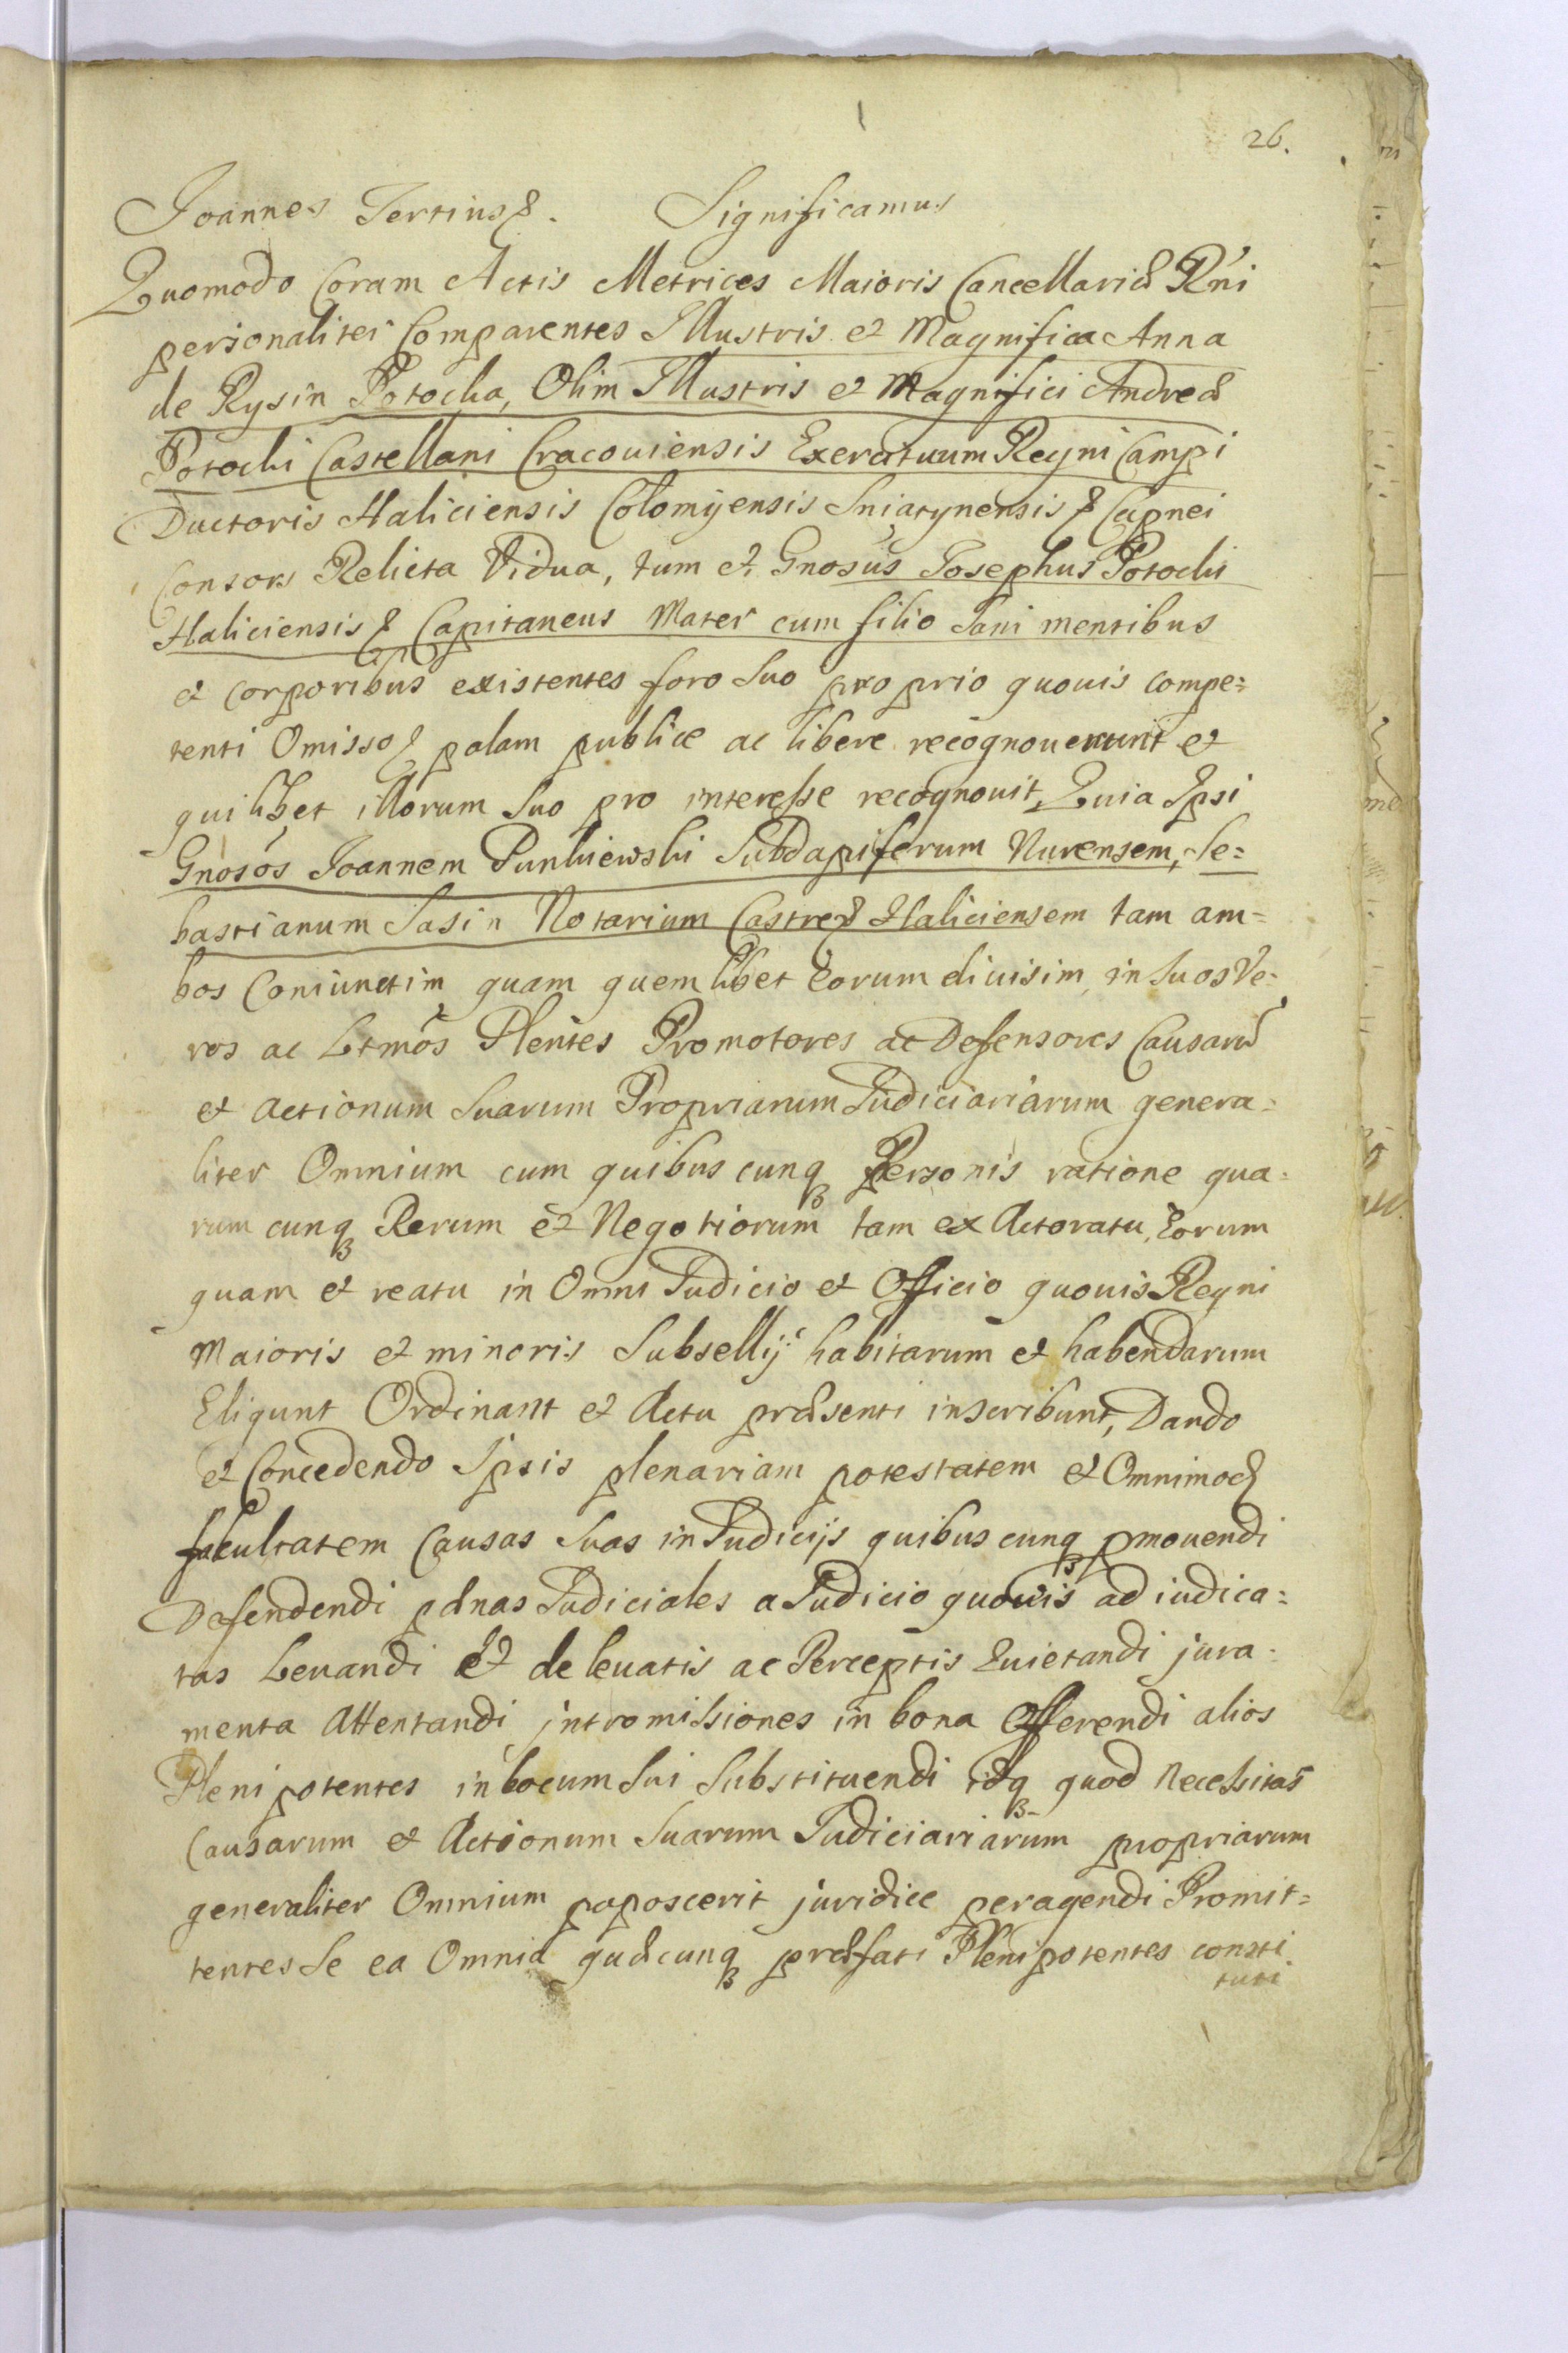 26.
Joannes Tertius &. Significamus
Quomodo Coram Actis Metrices Maioris Cancellariæ Rńi
personaliter Comparentes Illustris et Magnifica Anna
de Rysin Potocka, Olim Illustris et Magnifici Andreæ
Potocki Castellani Cracouiensis Exercituum Regni Campi
Ductoris Haliciensis Colomyensis Sniatynensis & Capnei
Consors Relicta Vidua, tum et Gnosus Josephus Potocki
Haliciensis & Capitaneus Mater cum filio Sani mentibus
et corporibus existentes foro Suo proprio quouis compe=
tenti Omisso & palam publice ac libere recognouerunt et
quilibet illorum Suo pro interesse recognouit, Quia Ipsi
Gnosos Joannem Punkiewski Subdapiferum Nurensem, Se=
bastianum Sasin Notarium Castreñ Haliciensem tam am=
bos Coniunctim quam quemlibet Eorum diuisim in Suos Ve=
ros ac Ltmos Plentes Promotores ac Defensores Causarũ
et actionum Suarum Propriarum Judiciariarum genera=
liter Omnium cum quibuscunqꝫ Personis ratione qua=
rumcunqꝫ Rerum et Negotiorum tam ex Actoratu Eorum
quam et reatu in Omni Judicio et Officio quouis Regni
Maioris et minoris Subsellij habitarum et habendarum
Eligunt Ordinant et Actu præsenti inscribunt, Dando
et Concedendo Ipsis plenariam potestatem et Omnimod
facultatem Causas Suas in Judicijs quibuscunqꝫ pmouendi
Defendendi pænas Judiciales a Judicio quouis adiudica=
tas Leuandi Et de leuatis ac Perceptis Quietandi jura=
menta Attentandi intromissiones in bona Offerendi alios
Plenipotentes in locum Sui Substituendi idqꝫ quod Necessitas
Causarum et Actionum Suarum Judiciariarum propriarum
generaliter Omnium poposcerit juridice peragendi Promit=
tentes Se ea Omnia quæcunqꝫ præfati Plenipotentes consti
tuti